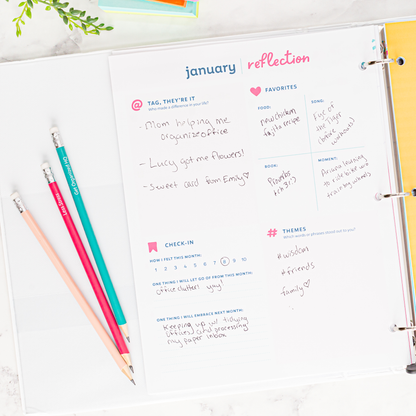 january | reflection
@ TAG, THEY'RE IT
Who made a difference in your life?
- Mom helping me
organize office
- Lucy got me flowers!
- Sweet card from Emily♡
FAVORITES
FOOD:
new chicken
fajita recipe
SONG:
Eye of
the Tiger
(before
workouts)
BOOK:
Proverbs
MOMENT:
learning
to ride bike w/o
training wheels
CHECK-IN
HOW I FELT THIS MONTH:
1 2 3 4 5 6 7 8 9 10
ONE THING I WILL LET GO OF FROM THIS MONTH:
office clutter! yay!
ONE THING I WILL EMBRACE NEXT MONTH:
Keeping up w/ tidying
office and processing
my paper inbox
# THEMES
Which words or phrases stood out to you?
#wisdom
#friends
family♡
Get Organized HQ